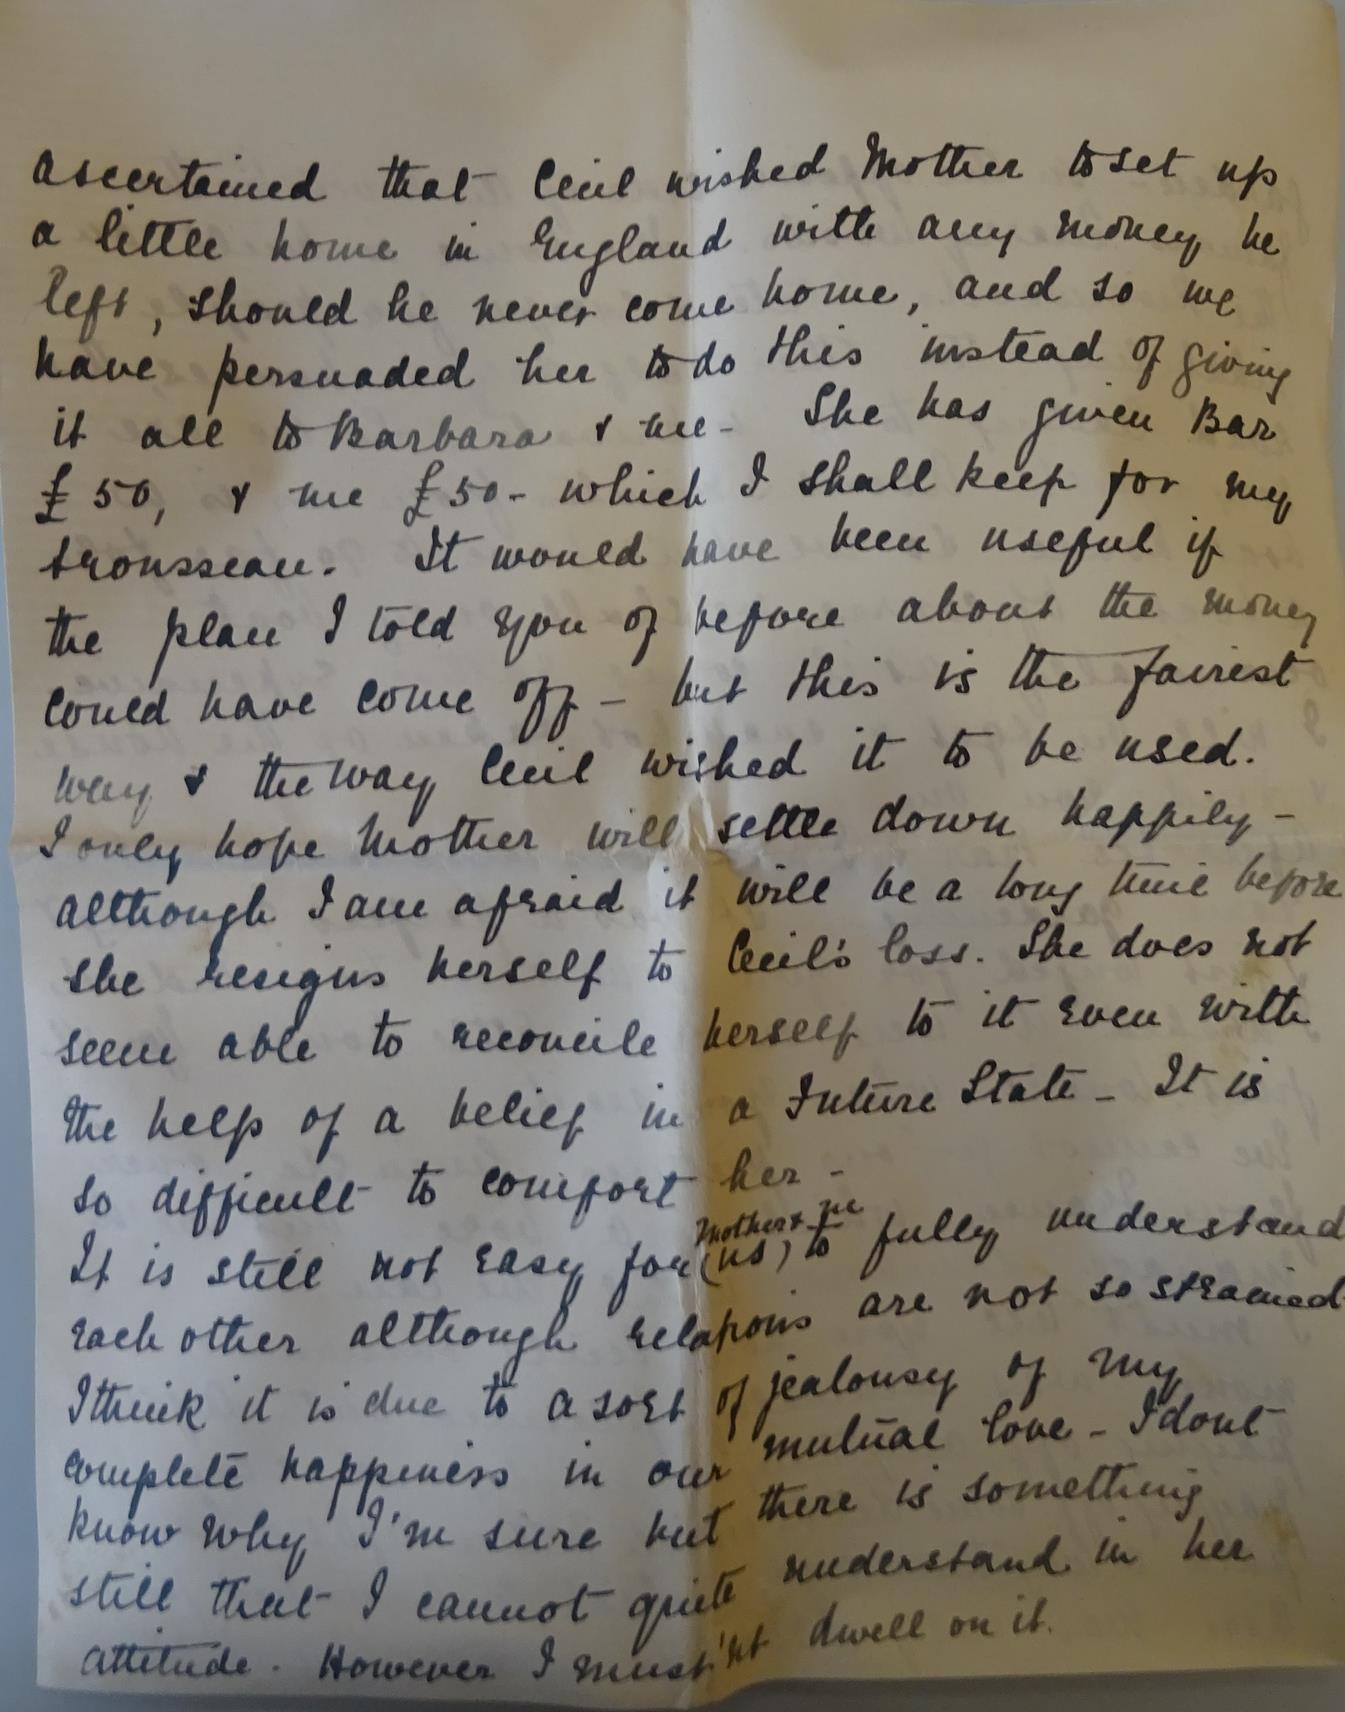 ascertained that Cecil wished Mother to set up
a little home in England with any money he
left, should he never come home, and so we
have persuaded her to do this instead of giving
it all to Barbara & me - She has given Bar
£50, & me £50 - which I shall keep for my
trousseau. It would have been useful if
the plan I told you of before about the money
could have come off - but this is the fairest
way & the way Cecil wished it to be used.
I only hope Mother will settle down happily -
although I am afraid it will be a long time before
she resigns herself to Cecil's loss. She does not
seem able to reconcile herself to it even with
the help of a belief in a Future State - It is
so difficult to comfort her -
Mother & me
It is still not easy for (us) to fully understand
each other although relations are not so strained
I think it is due to a sort of jealousy of my
complete happiness in our mutual love - I dont
know why I'm sure but there is something
still that I cannot quite understand in her
attitude. However I must'nt dwell on it.